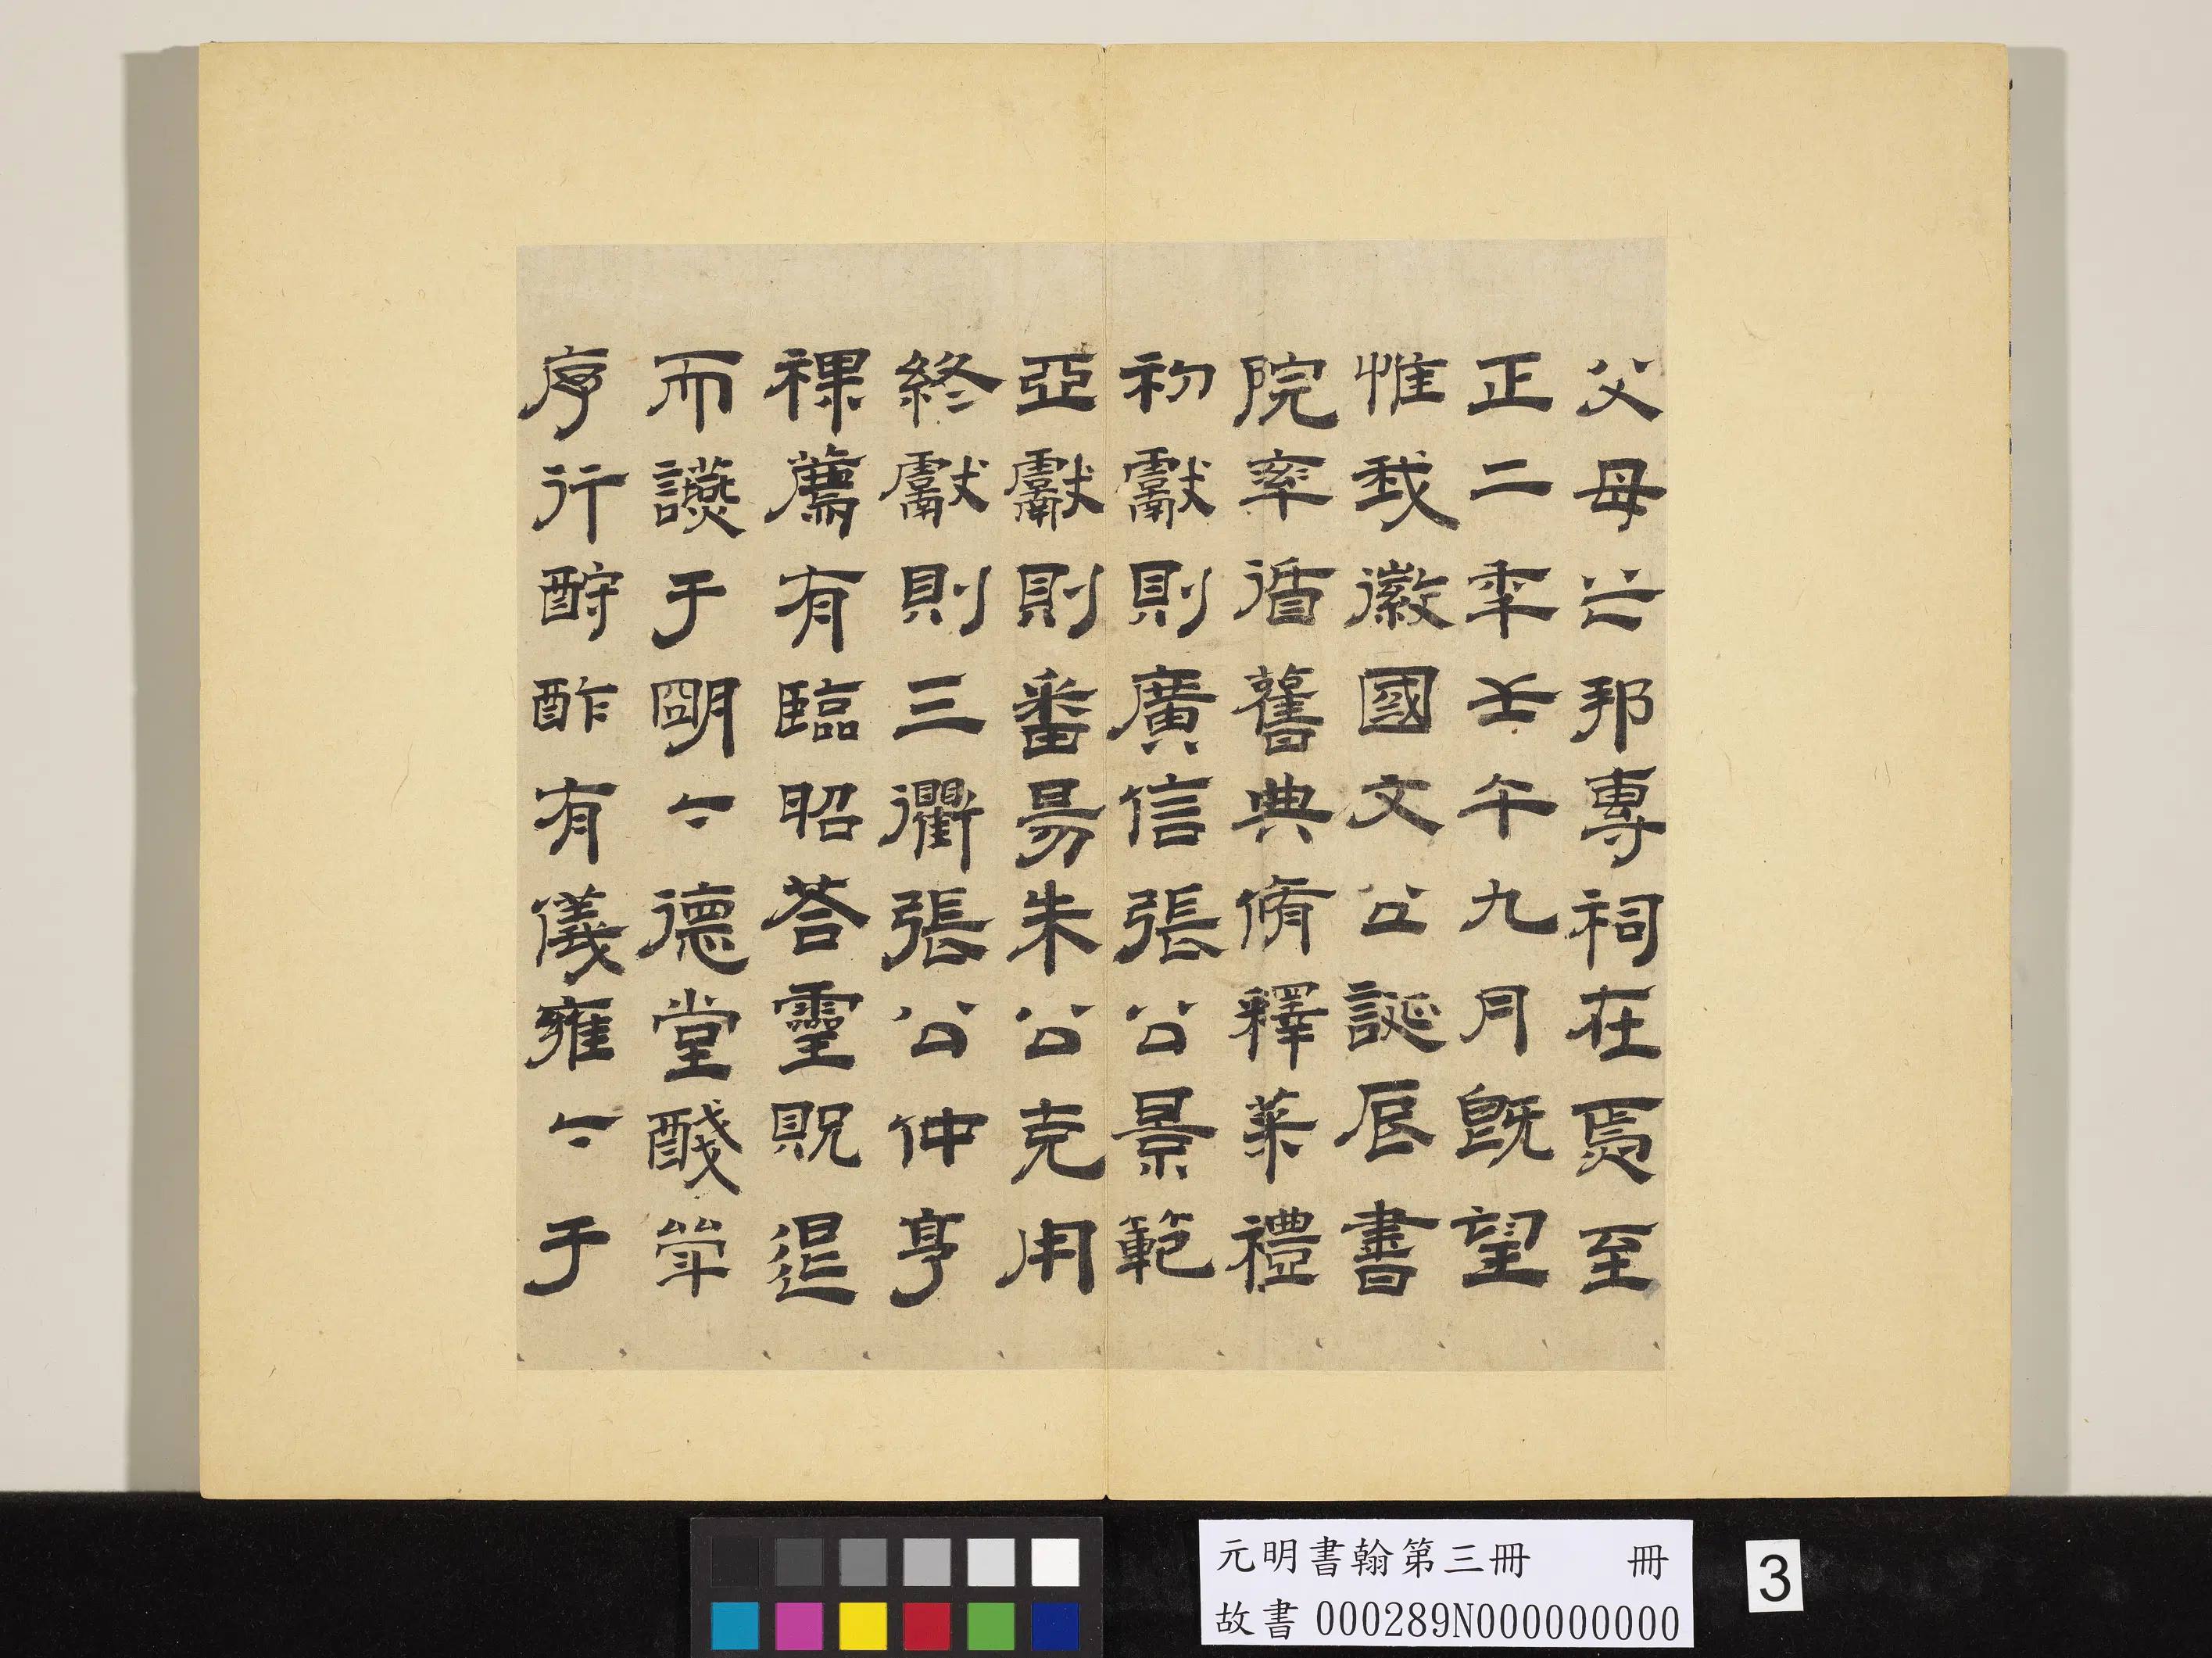 父母之邦專祠在焉至
正二年壬午九月既望
惟我徽國文公誕辰書
院率循舊典脩釋菜禮
初獻則廣信張公景範
亞獻則番昜朱公克用
終獻則三衢張公仲亨
祼薦有臨昭荅靈貺退
而讌于明〻德堂醆斝
序行酧酢有儀雍〻于
元明書翰第三冊 冊
故書 000289N000000000
3